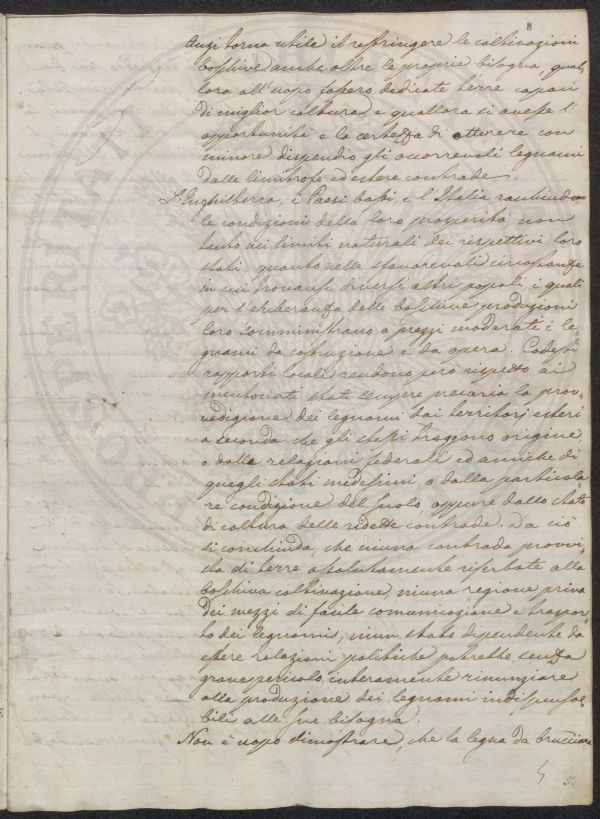 8
Anzi torna utile il restringere le coltivazioni
boschive anche oltre le proprie bisogna, qual-
lora all'uopo fossero dedicate terre capaci
di miglior coltura, e quallora si avesse l'
opportunità e la certezza di ottenere con
minore dispendio gli occorrevoli legnami
dalle limitrofe ed estere contrade.
L'Inghilterra, i Paesi bassi, e l'Italia
le condizioni della loro prosperità non
tanto nei limiti naturali dei rispettivi loro
stati, quanto nelle favorevoli circostanze
in cui trovansi diversi altri popoli, i quali
per l'esuberanza delle boschive produzioni
loro somministrano a prezzi moderati i le-
gnami da costruzione e da opera. Codesti
rapporti locali rendono però rispetto ai
mentovati stati sempre precaria la prov-
vedigione dei legnami dai territorj esteri
a seconda che gli stessi traggono origine,
o dalle relazioni federali ed amiche di
quegli stati medesimi, o dalla particola-
re condizione del suolo, oppure dallo stato
di coltura delle ridette contrade. Da ciò
si conchiuda, che niuna contrada provvi-
sta di terre assolutamente riserbate alla
boschiva coltivazione, niuna regione priva
dei mezzi di facile comunicazione e traspor-
to dei legnami, niun stato dipendente da
estere relazioni politiche potrebbe senza
grave pericolo interamente rinunziare
alla produzione dei legnami indispensa-
bili alle sue bisogna.
Non è uopo dimostrare, che la legna da brucciare